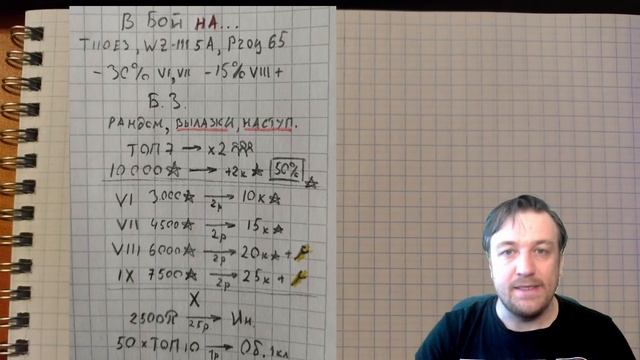 В БОЙ НА...
T110E3, WZ-111 5A, Progg 65
-30% VI, VII -15% VIII+
Б.З.
РАНДОМ, ВЫЛАЗКИ, НАСТУП.
ТОП 7 → x2
10000☆ → +2к☆ 50% ☆
VI 3000☆ → 2р 10к☆
VII 4500☆ → 2р 15к☆
VIII 6000☆ → 2р 20к☆ +
IX 7500☆ → 2р 25к +
X
2500 → 25р Ин.
50 x ТОП 10 → 1р Об. 1кл